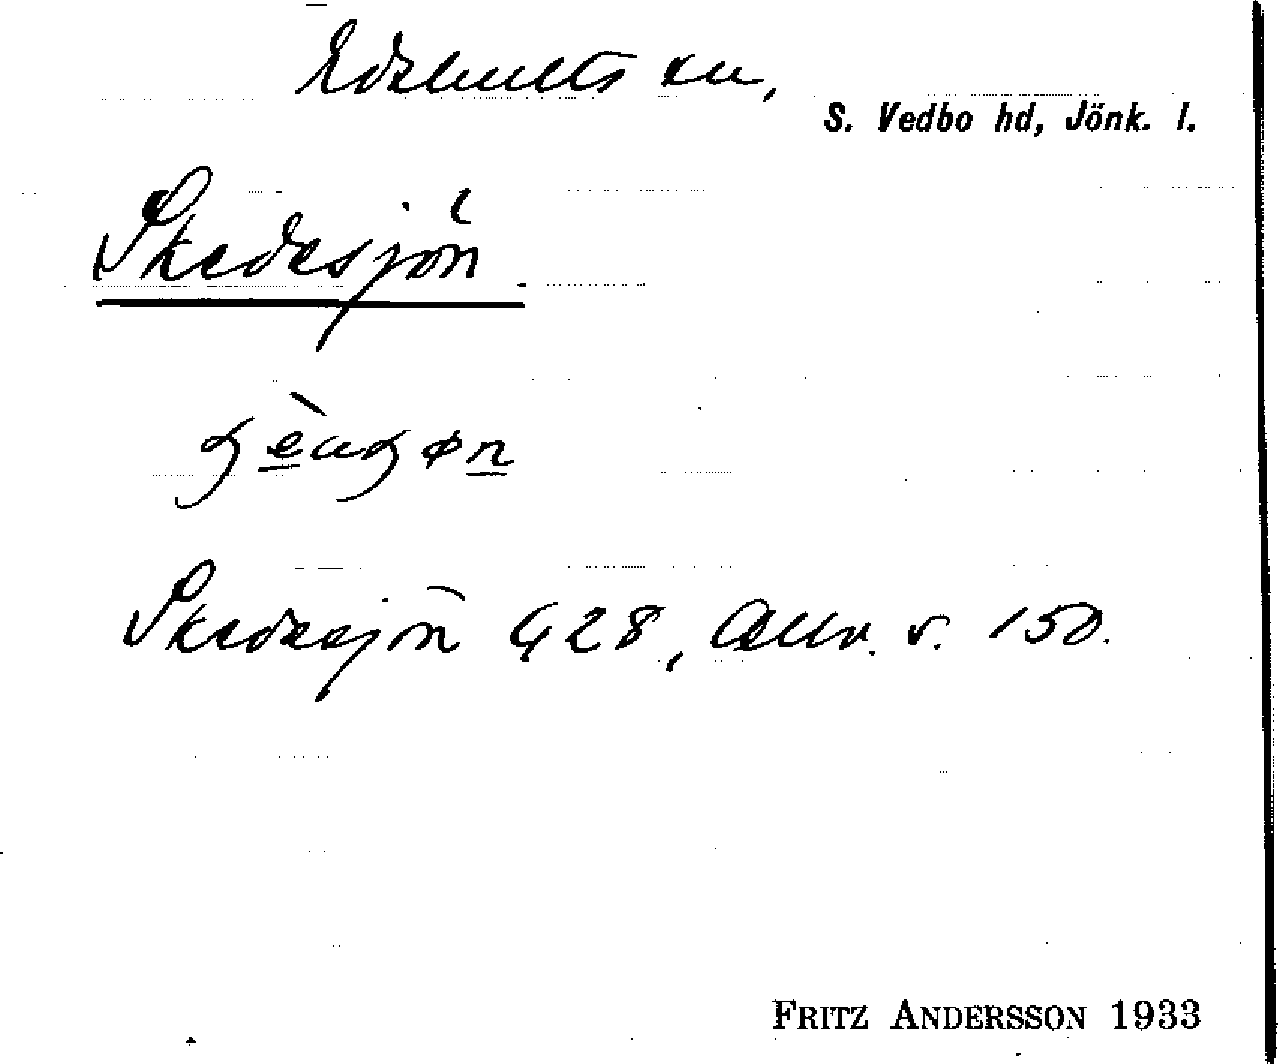 Edshults sn,
S. Vedbo hd, Jönk. l.
Skedesjön
Skedesjön G 28, Allv. v. 150.
FRITZ ANDERSSON 1933